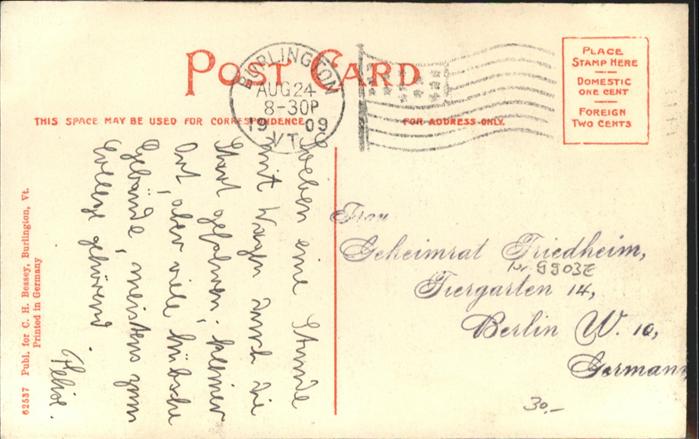 POST CARD
BURLINGTON
AUG 24
8-30P
1909
VT.
PLACE
STAMP HERE
DOMESTIC
ONE CENT
FOREIGN
TWO CENTS
THIS SPACE MAY BE USED FOR CORRESPONDENCE
FOR ADDRESS ONLY.
Soeben eine Stunde
mit Wagen durch die
Stadt gefahren; kleiner
Ort, aber viele hübsche
Gebäude, meistens zum
College gehörend.
Felix.
Frau
Geheimrat Friedheim,
Tiergarten 14,
Berlin W. 10,
Germany
30.-
62537 Publ. for C. H. Bessey, Burlington, Vt.
Printed in Germany